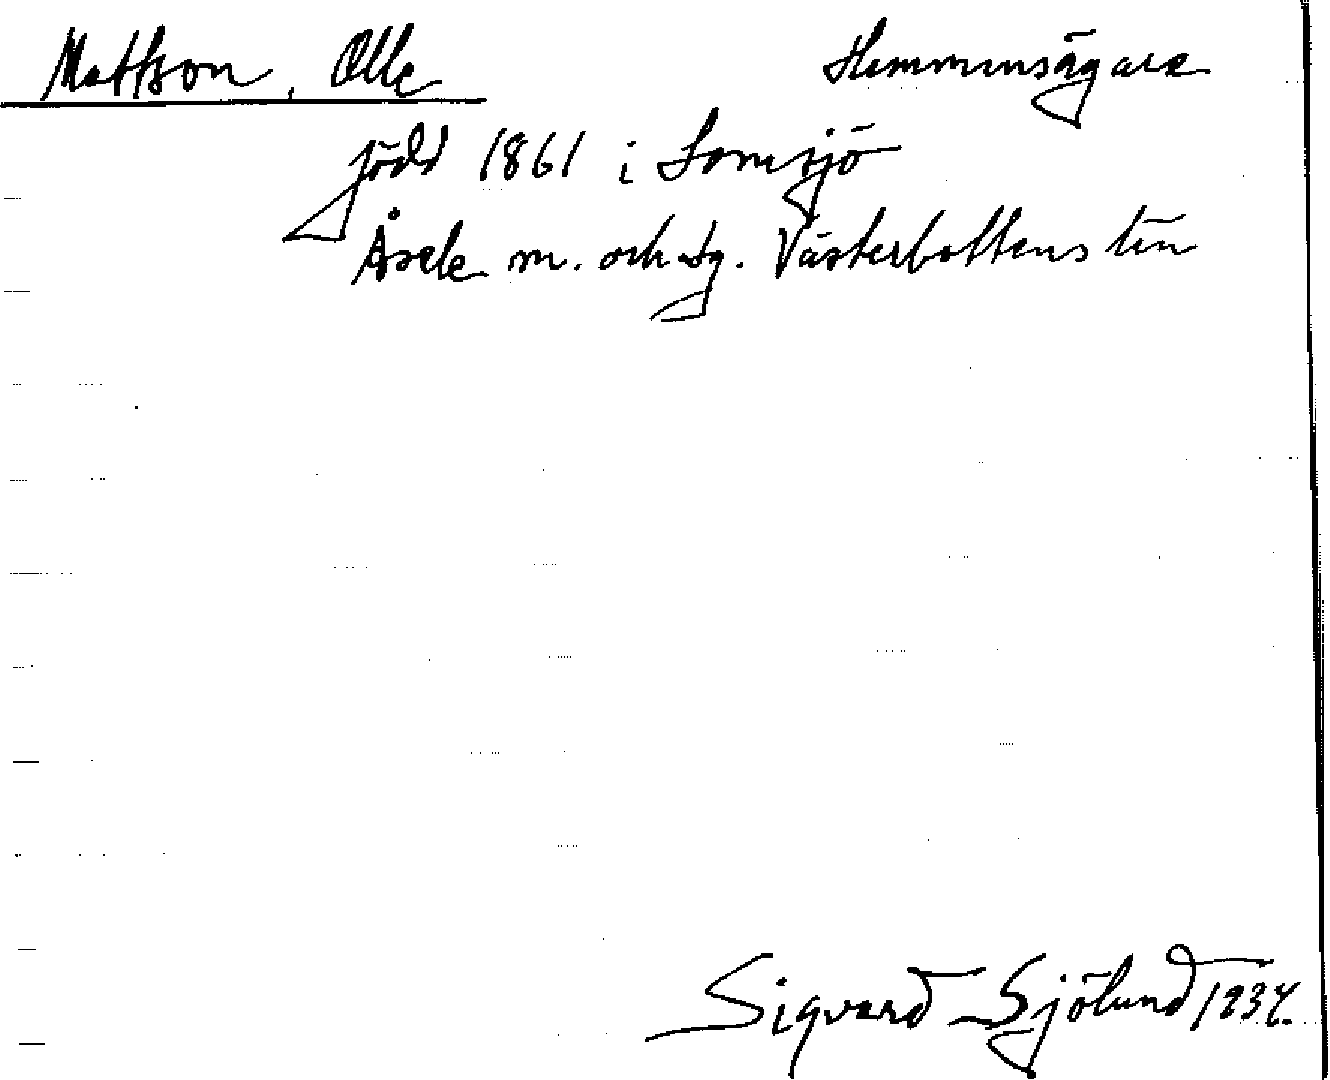 Mattson, Olle Hemmensägare
född 1861 i Lomsjö
Åsele m. och sg. Västerbottens län
Sigvard Sjölund 1934.